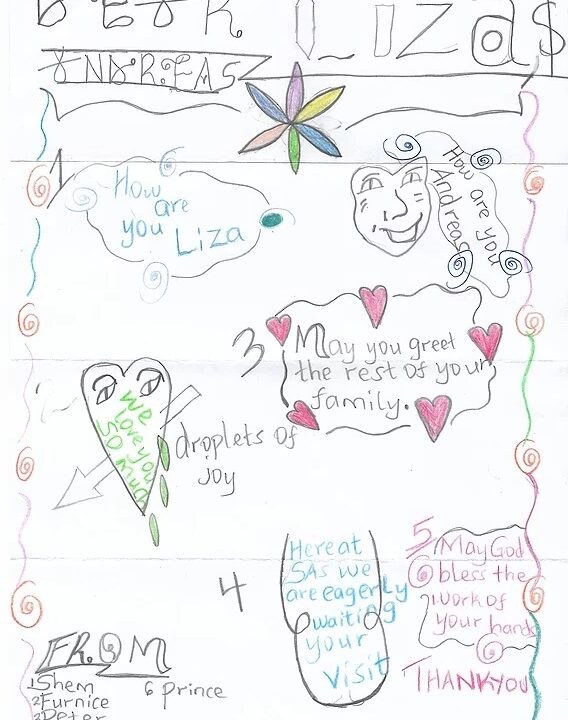 DEAR LiZa
ANDREAS
1
How
are
you
Liza
How are you
Andreas
3
May you greet
the rest of your
family.
2
We
love you
so much
droplets of
joy
4
Here at
SAs we
are eagerly
waiting
your
visit
5
May God
bless the
work of
your hands
THANKYOU
FROM
1 Shem
2 Furnice
3 Peter
6 Prince